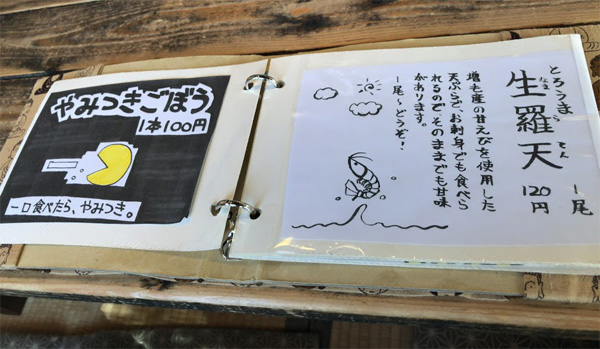 やみつきごぼう
1本100円
一口食べたら、やみつき。
とろうま
生羅天
なまらてん
一尾
120円
増毛産の甘えびを使用した
天ぷらで、お刺身でも食べら
れるので、そのままでも甘味
があります。
一尾〜どうぞ!